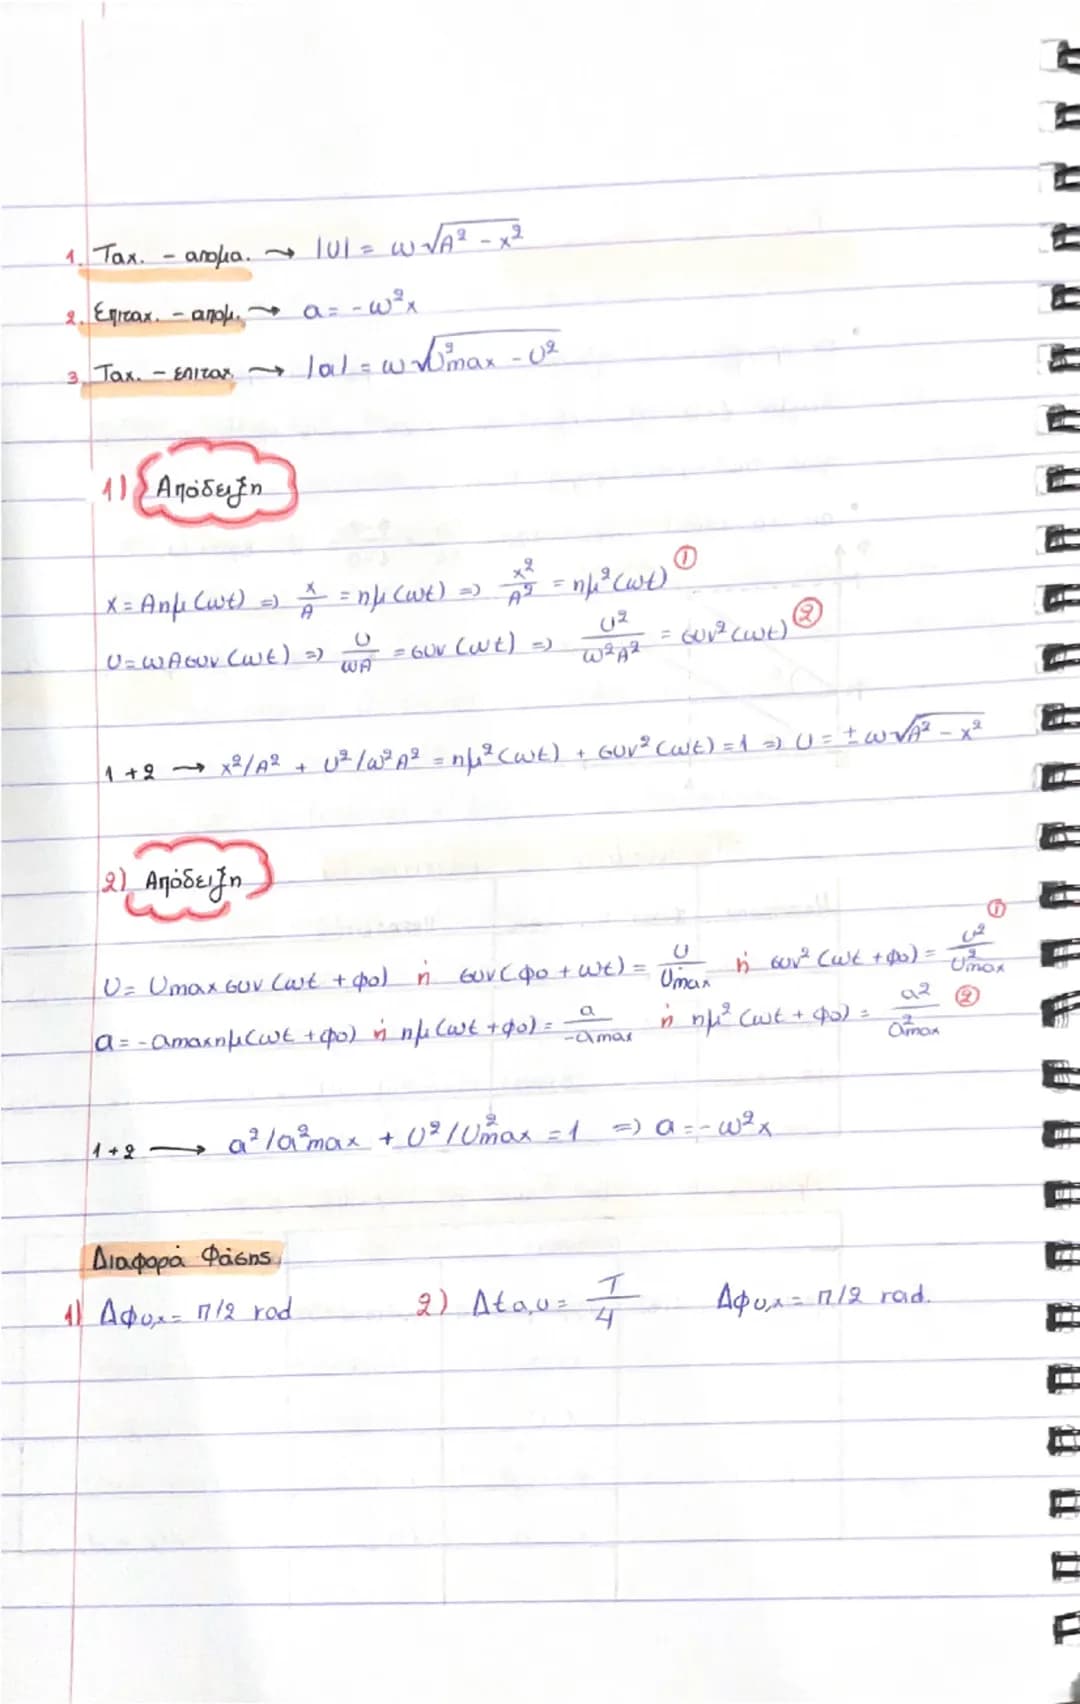 1. Ταχ. - απομα. → |υ| = ω√A² - x²
2. Επιταχ. - απομ. → a = -ω²x
3. Ταχ. - επιταχ. → |a| = ω√υ²max - υ²
1) Απόδειξη
x = Aημ(ωt) => x/A = ημ(ωt) => x²/A² = ημ²(ωt) ①
υ = ωAσυν(ωt) => υ/ωA = συν(ωt) => υ²/ω²A² = συν²(ωt) ②
1+2 → x²/A² + υ²/ω²A² = ημ²(ωt) + συν²(ωt) = 1 => υ = ±ω√A² - x²
2) Απόδειξη
υ = υmaxσυν(ωt + φο) ή συν(φο + ωt) = υ/υmax ή συν²(ωt + φο) = υ²/υ²max ①
a = -amaxημ(ωt + φο) ή ημ(ωt + φο) = a/-amax ή ημ²(ωt + φο) = a²/a²max ②
1+2 → a²/a²max + υ²/υ²max = 1 => a = -ω²x
Διαφορά Φάσης
1) Δφυ,x = π/2 rad 2) Δta,υ = T/4 Δφυ,x = π/2 rad.